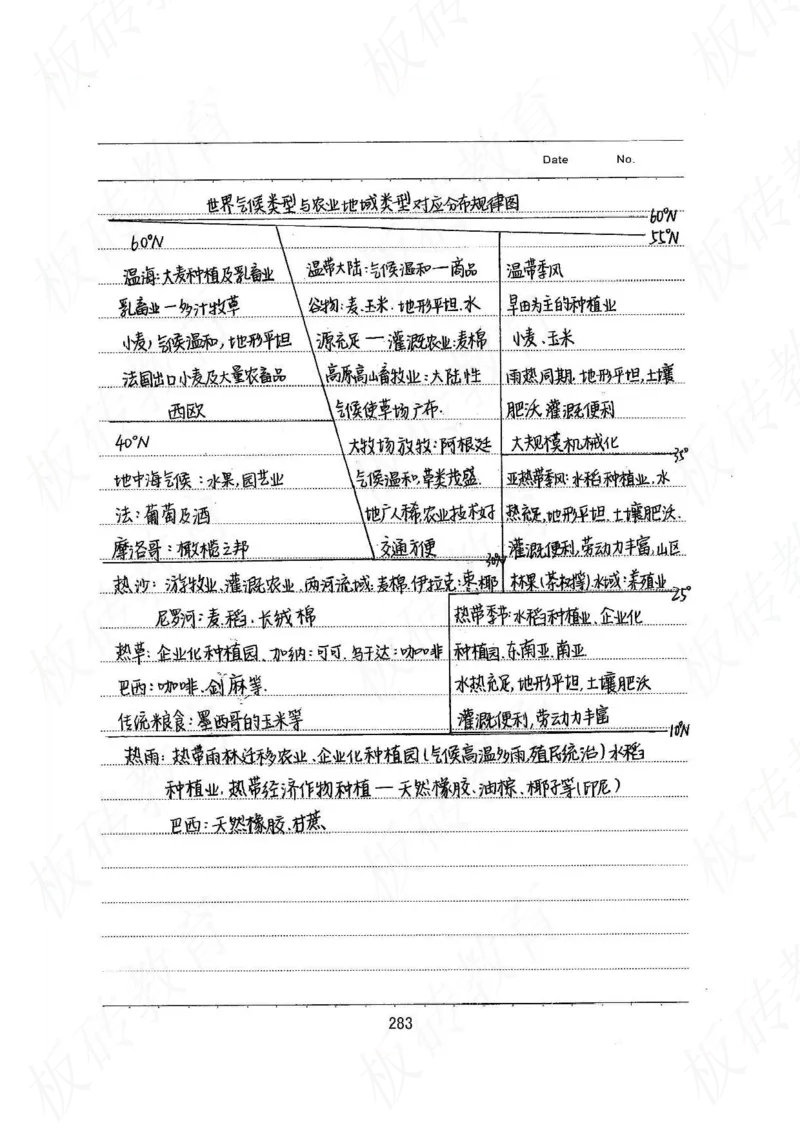 Date No.
世界气候类型与农业地域类型对应分布规律图
60°N
55°N
60°N
温海:大麦种植及乳畜业
乳畜业一多汁牧草
小麦,气候温和,地形平坦
法国出口小麦及大量农畜品
西欧
40°N
地中海气候:水果,园艺业
法:葡萄及酒
摩洛哥:橄榄之邦
温带大陆:气候温和一商品
谷物:麦.玉米.地形平坦.水
源充足一灌溉农业:麦棉
高原高山畜牧业:大陆性
气候使草场广布.
大牧场放牧:阿根廷
气候温和,草类茂盛.
地广人稀农业技术好
交通方便
温带季风
旱田为主的种植业
小麦、玉米
雨热同期.地形平坦,土壤
肥沃.灌溉便利
大规模机械化
35°
亚热带季风:水稻种植业.水
热充足,地形平坦.土壤肥沃.
灌溉便利,劳动力丰富,山区
林果(茶柑橙)水域:养殖业
30°N
25°
热沙:游牧业、灌溉农业、两河流域:麦棉.伊拉克:枣椰
尼罗河:麦、稻、长绒棉
热草:企业化种植园、加纳:可可.乌干达:咖啡
巴西:咖啡、剑麻等.
传统粮食:墨西哥的玉米等
热带季节:水稻种植业、企业化
种植园.东南亚.南亚
水热充足,地形平坦,土壤肥沃
灌溉便利,劳动力丰富
10°N
热雨:热带雨林迁移农业、企业化种植园(气候高温多雨,殖民统治)水稻
种植业,热带经济作物种植一天然橡胶、油棕、椰子等(印尼)
巴西:天然橡胶、甘蔗、
283
板砖教育